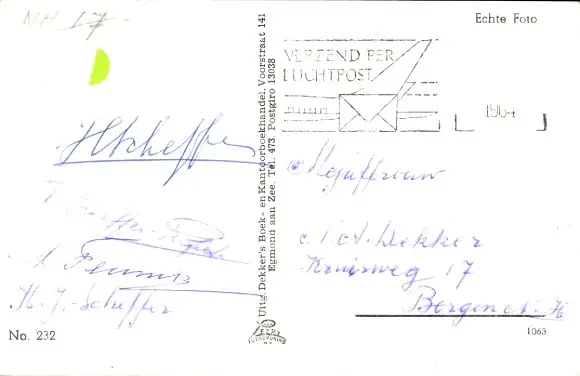 NH 17-
Echte Foto
VERZEND PER
LUCHTPOST
1964
HScheffer
H. J. Scheffer
Uitg. Dekker's Boek- en Kantoorboekhandel, Voorstraat 141
Egmond aan Zee. Tel. 473. Postgiro 13038
Mejuffrouw
Dekker
Kruisweg 17
Bergen N-H
No. 232
1063